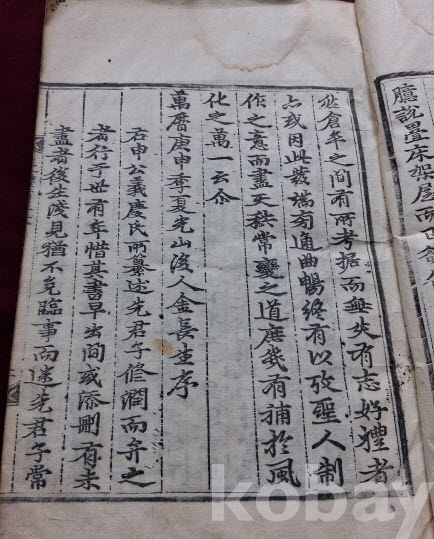 臆說疊床架屋而
於倉卒之間有所考据而無失有志好禮者
亦或因此發端旁通曲暢終有以攷聖人制
作之意而盡天秩常變之道庶幾有補於風
化之萬一云尒
萬曆庚申季夏光山後人金長生序
右申公義慶氏所纂述先君子修潤而弁之
者行于世有年惜其書早出間或添刪有未
盡者後生淺見猶不克臨事而迷先君子常
kobay